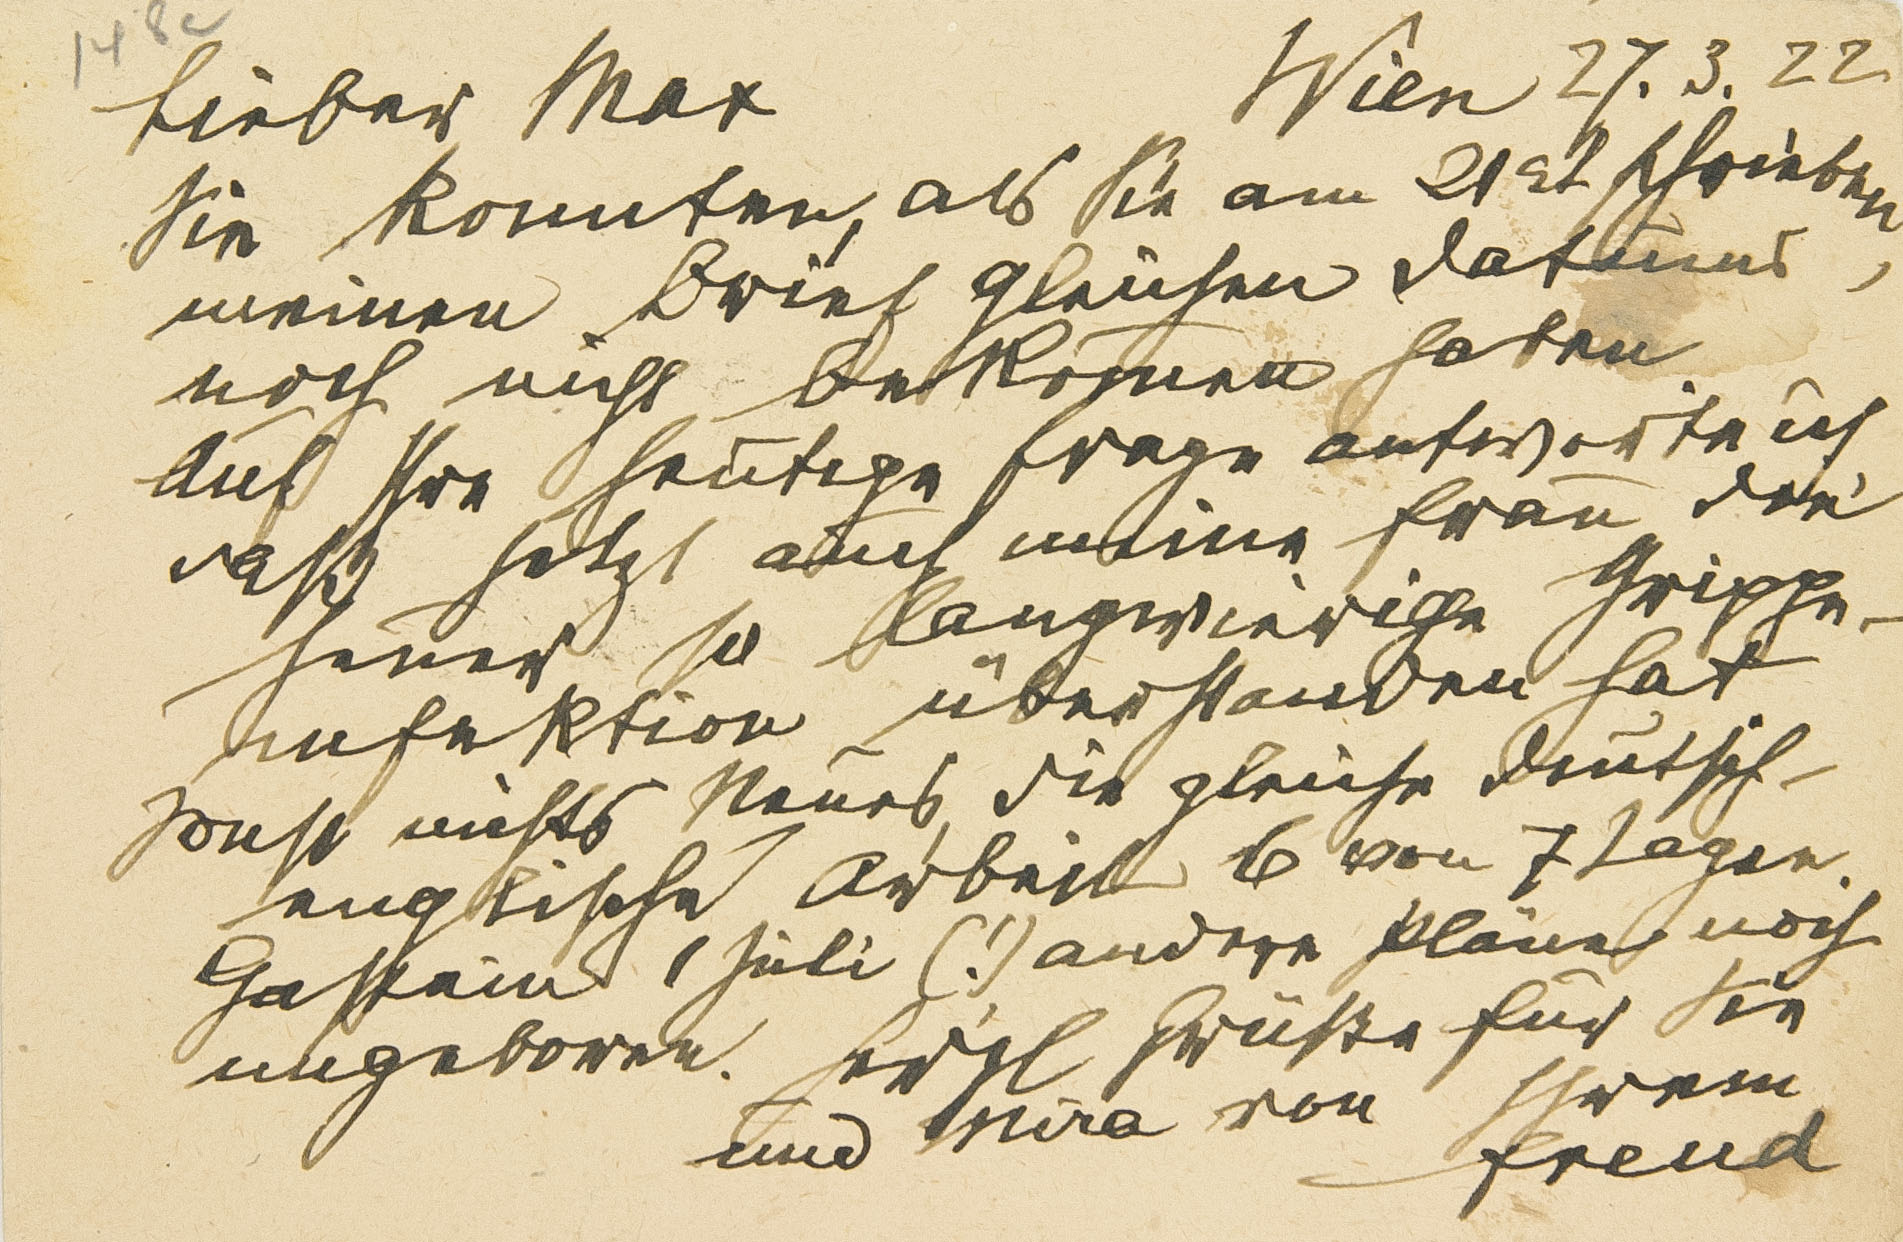 148c
Lieber Max Wien 27.3.22
Sie konnten, als Sie am 21st schrieben,
meinen Brief gleichen Datums
noch nicht bekom̅en haben
Auf Ihre heutige Frage antworte ich
daß jetzt auch meine Frau die
heuer so langwierige Grippe-
infektion überstanden hat
Sonst nichts Neues, die gleiche deutsch-
englische Arbeit 6 von 7 Tagen.
Gastein 1 Juli (!) andere Pläne noch
ungeboren. Herzl Grüße für Sie
und Mira von Ihrem
Freud